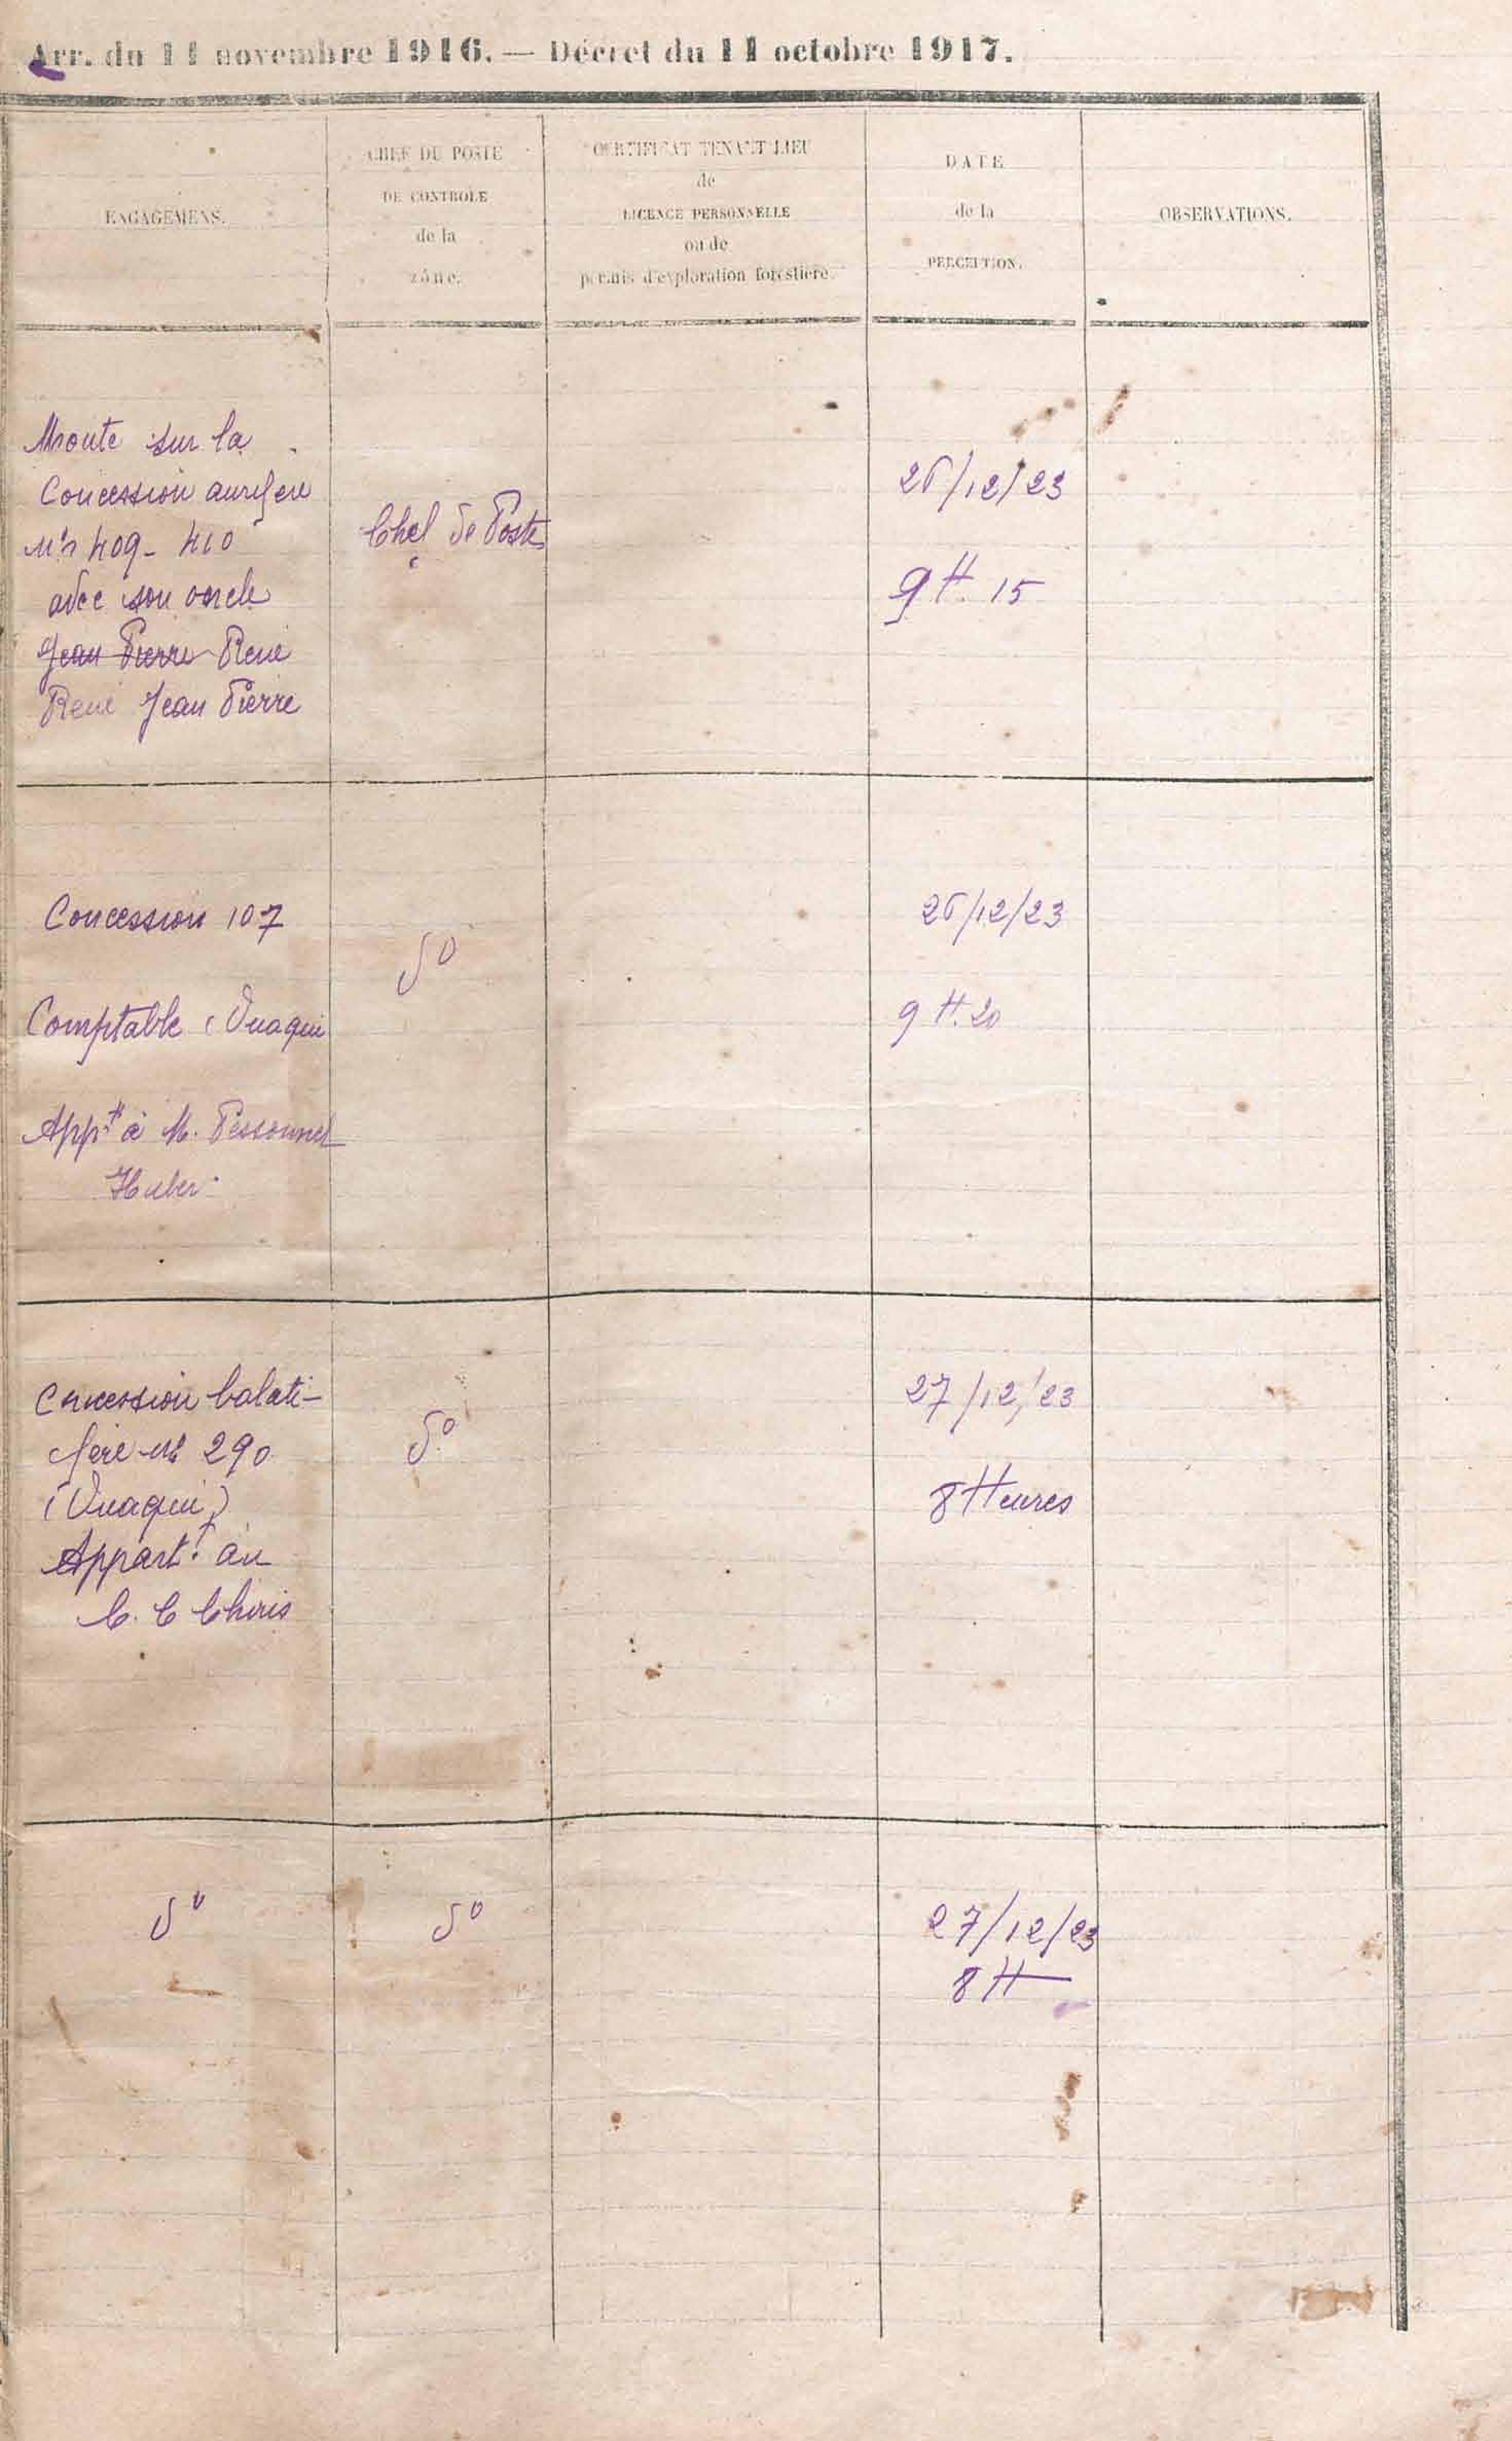 Arr. du 11 novembre 1916. — Décret du 11 octobre 1917.
ENGAGEMENS.
CHEF DU POSTE
DE CONTROLE
de la
zône.
CERTIFICAT TENANT LIEU
de
LICENCE PERSONNELLE
ou de
permis d'exploration forestière.
DATE
de la
PERCEPTION.
OBSERVATIONS.
Monte sur la
Concession aurifère
Nos 409 - 410
avec son oncle
Jean Pierre René
René Jean Pierre
Chef de Poste
26/12/23
9 H. 15
Concession 107
Comptable (Inaqui
Appt à M. Pessonnel
Huber.
do
26/12/23
9 H. 20
Concession balati-
fère No 290
(Inaqui)
Appart. t au
C. C Chiris
do
27/12/23
8 Heures
do
do
27/12/23
8 H